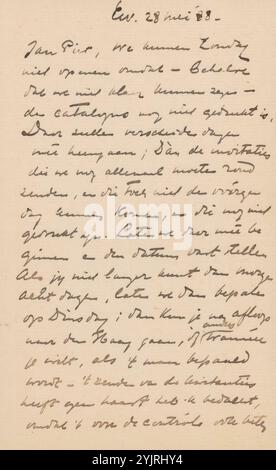 Ew. 28 mei '88.
Jan Piet, we kunnen Zondag
niet openen omdat – behalve
dat we niet klaar kunnen zijn –
de catalogus nog niet gedrukt is.
Daar zullen verscheide dagen
mee heengaan; Dan de invitaties
die we nog allemaal moeten rond
zenden, en die toch niet de vorige
dag kunnen komen, en die nog niet
gedrukt zijn. Laten we daar mee be
ginnen en den datum vast stellen
Als jij niet langer kunt dan morgen
acht dagen, laten we dan bepalen
op Dinsdag; dan kun je na afloop
naar den Haag gaan, of anders
je wilt, als 't maar bepaald
wordt – 't zenden van de invitaties
heeft geen haast heb ik bedacht,
omdat 't voor de controle ook beter
alamy
Image ID: 2YJRHY4
www.alamy.com